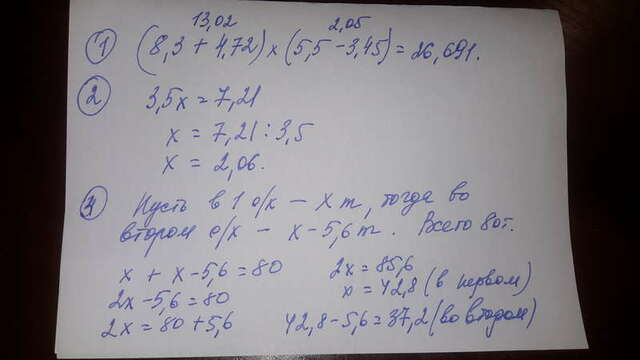 13,02 2,05
1 (8,3 + 4,72) x (5,5 - 3,45) = 26,691.
2 3,5x = 7,21
x = 7,21 : 3,5
x = 2,06.
4 Пусть в 1 о/х — х т, тогда во
втором о/х — х - 5,6 т. Всего 80т.
x + x - 5,6 = 80
2x - 5,6 = 80
2x = 80 + 5,6
2x = 85,6
x = 42,8 (в первом)
42,8 - 5,6 = 37,2 (во втором)